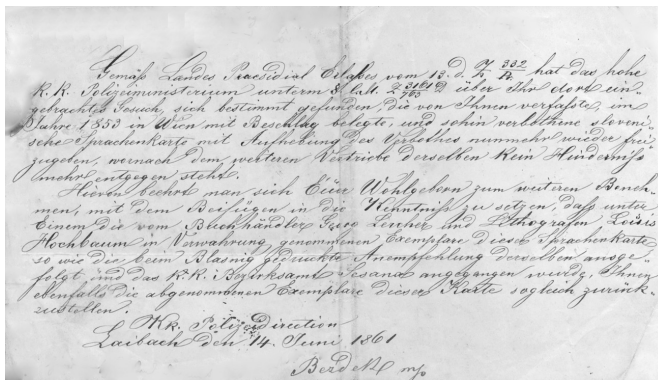 Gemäß Landes Praesidial Erlasses vom 13. d. Z. 332/A. hat das hohe
K. K. Polizeiministerium unterm 8. l. Mt. Z 3161/763 D über Ihr dort ein-
gebrachtes Gesuch, sich bestimmt gefunden, die von Ihnen verfaßte, im
Jahre 1853 in Wien mit Beschlag belegte, und sohin verbothene sloveni-
sche Sprachenkarte mit Aufhebung des Verbothes nunmehr wieder frei
zugeben, wornach dem weiteren Vertriebe derselben kein Hinderniß
mehr entgegen steht.
Hievon beehrt man sich Euer Wohlgeborn zum weiteren Beneh-
men, mit dem Beifügen in die Kenntniß zu setzen, daß unter
Einem die vom Buchhändler Georg Lercher und Lithografen Loisis
Hochbaum in Verwahrung genommenen Exemplare dieser Sprachenkarte
so wie die beim Blasnig gedruckte Anempfehlung derselben ausge-
folgt und das k. k. Bezirksamt Sesana angegangen wurde, Ihnen
ebenfalls die abgenommenen Exemplare dieser Karte sogleich zurück-
zustellen.
K. k. Polizeidirection
Laibach den 14. Juni 1861
Bezdek m/p